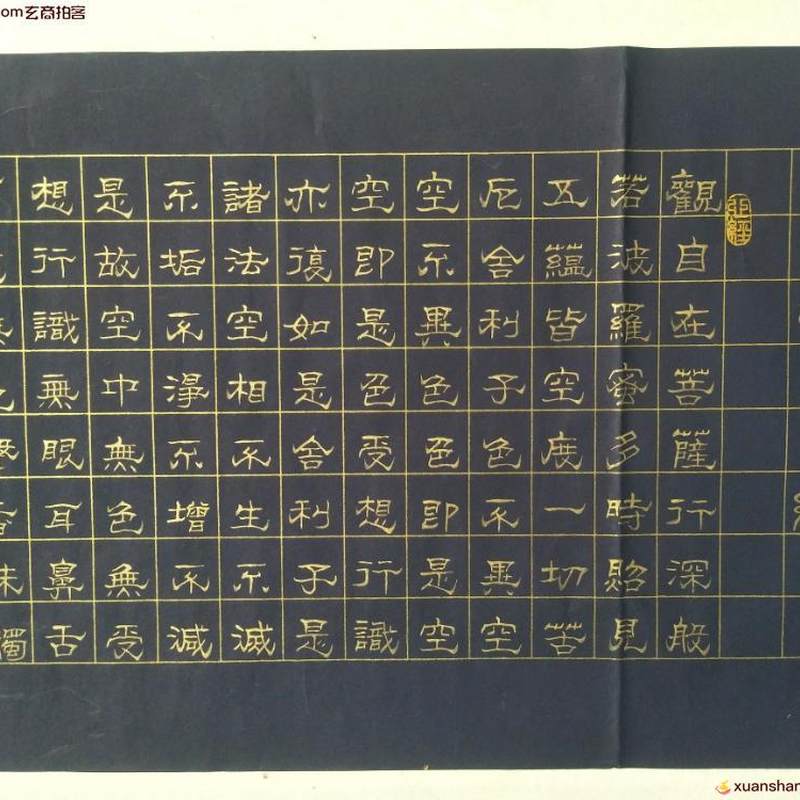 om玄商拍客
觀自在菩薩行深般
若波羅蜜多時照見
五蘊皆空度一切苦
厄舍利子色不異空
空不異色色即是空
空即是色受想行識
亦復如是舍利子是
諸法空相不生不滅
不垢不淨不增不減
是故空中無色無受
想行識無眼耳鼻舌
味觸
xuanshan